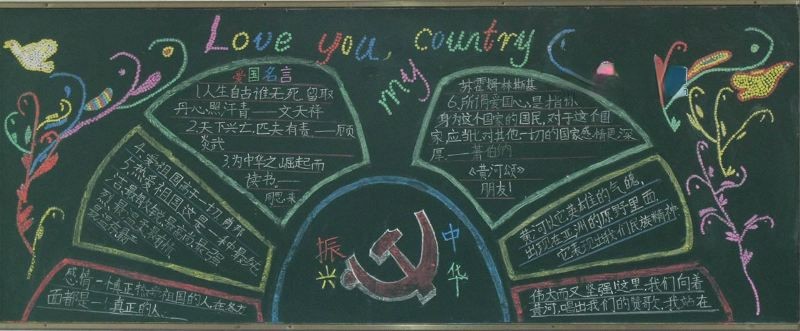 Love you, my country
爱国名言
1.人生自古谁无死,留取
丹心照汗青——文天祥
2.天下兴亡,匹夫有责——顾
炎武
3.为中华之崛起而
读书——
周恩来
4.爱祖国高于一切
5.热爱祖国,这是一种最纯
感情一个真正我的祖国的人,在各方
面都是一个真正的人
苏霍姆林斯基
6.所谓爱国心,是指你
身为这个国家的国民,对于这个国
家,应当比对其他一切的国家感情更深
厚——萧伯纳
《黄河颂》
朋友!
黄河以它英雄的气魄,
出现在亚洲的原野里面,
它表现出我们民族精神
伟大而又坚强!这里,我们向着
黄河,唱出我们的赞歌,我站在
振兴
中华